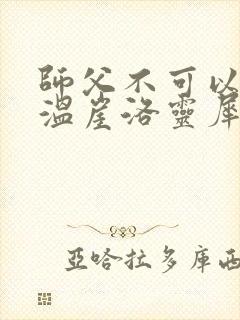 師父不可以
溫崖洛靈犀
亞哈拉多庫西